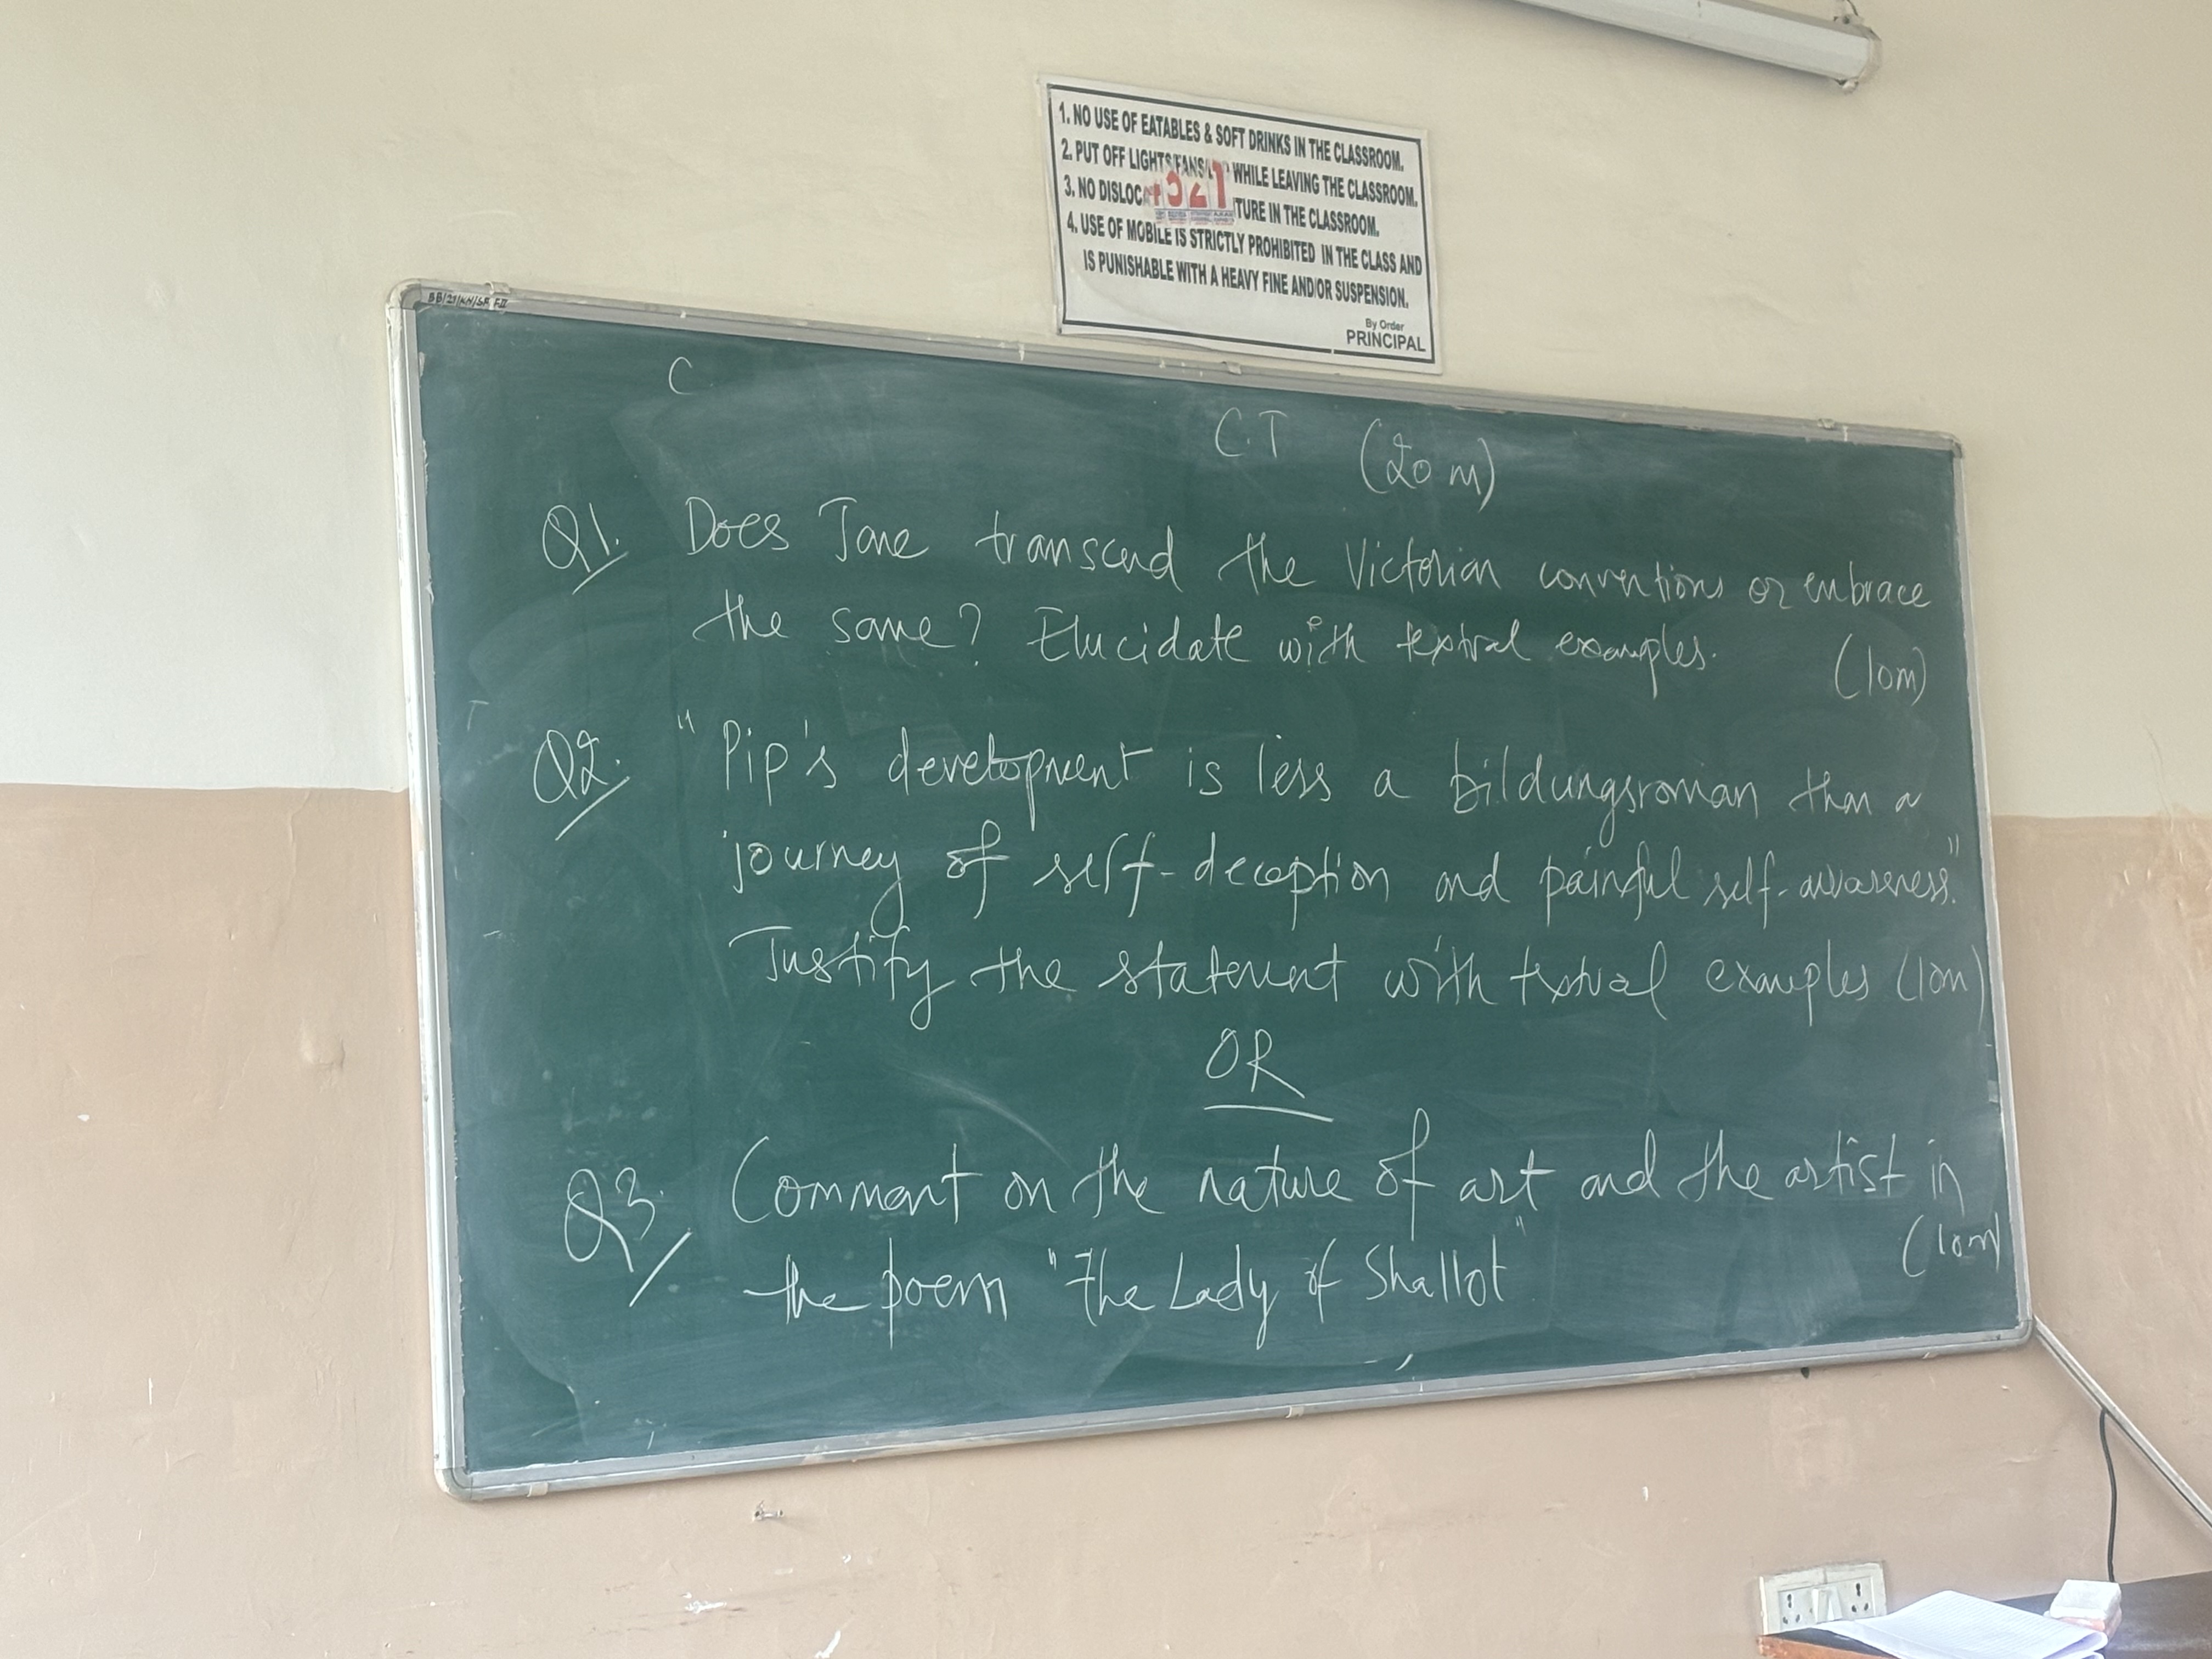 1. NO USE OF EATABLES & SOFT DRINKS IN THE CLASSROOM.
2. PUT OFF LIGHTS/FANS/ WHILE LEAVING THE CLASSROOM.
3. NO IN THE CLASSROOM.
4. USE OF MOBILE IS STRICTLY PROHIBITED IN THE CLASS AND
IS PUNISHABLE WITH A HEAVY FINE AND/OR SUSPENSION.
By Order
PRINCIPAL
C
C.T (20 m)
Q1. Does Jane transcend the Victorian conventions or embrace
the same? Elucidate with textual examples. (10m)
Q2. "Pip's development is less a bildungsroman than a
journey of self-deception and painful self-awareness."
Justify the statement with textual examples (10m)
OR
Q3. Comment on the nature of art and the artist in
the poem "The Lady of Shallot" (10m)